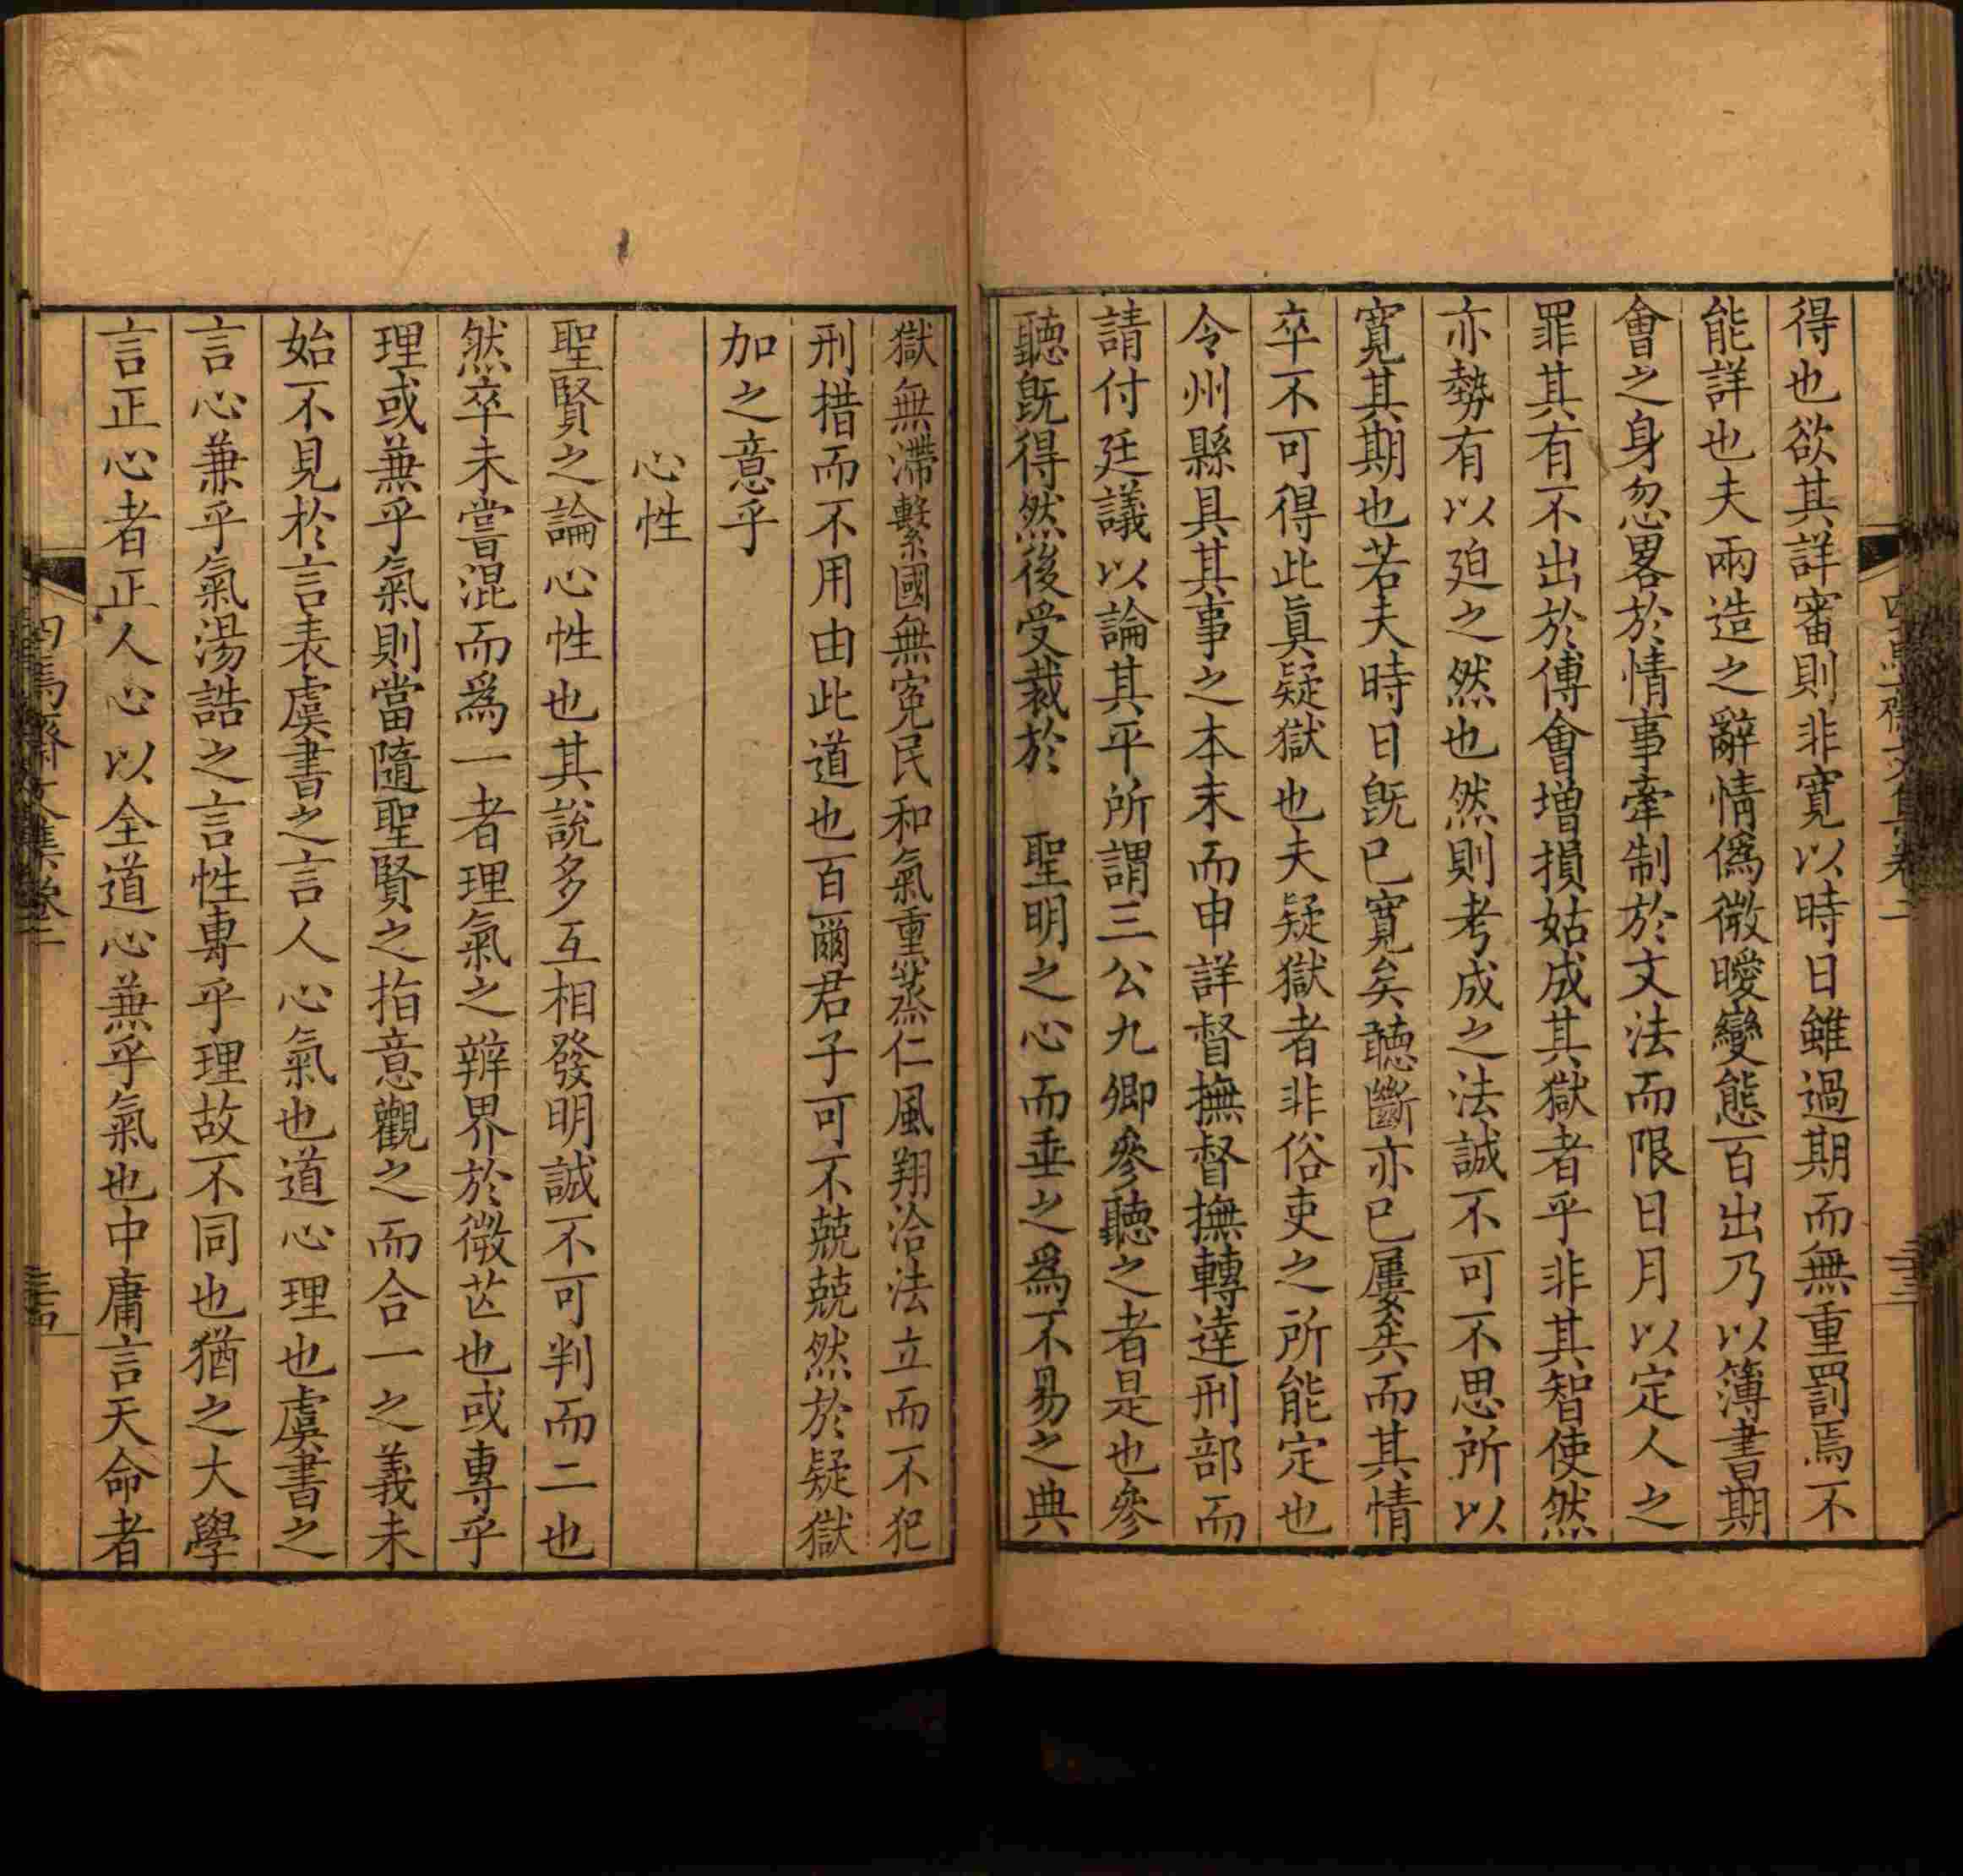 得也欲其詳審則非寬以時日雖過期而無重罰焉不
能詳也夫兩造之辭情偽微曖變態百出乃以簿書期
會之身忽畧於情事牽制於文法而限日月以定人之
罪其有不出於傅會增損姑成其獄者乎非其智使然
亦勢有以廹之然也然則考成之法誠不可不思所以
寬其期也若夫時日旣已寬矣聽斷亦已屢矣而其情
卒不可得此眞疑獄也夫疑獄者非俗吏之所能定也
令州縣具其事之本末而申詳督撫督撫轉達刑部而
請付廷議以論其平所謂三公九卿參聽之者是也參
聽旣得然後受裁於 聖明之心而垂之爲不易之典
獄無滯繫國無冤民和氣熏蒸仁風翔洽法立而不犯
刑措而不用由此道也百爾君子可不兢兢然於疑獄
加之意乎
心性
聖賢之論心性也其說多互相發明誠不可判而二也
然卒未嘗混而爲一者理氣之辨界於微芒也或專乎
理或兼乎氣則當隨聖賢之指意觀之而合一之義未
始不見於言表虞書之言人心氣也道心理也虞書之
言心兼乎氣湯誥之言性專乎理故不同也猶之大學
言正心者正人心以全道心兼乎氣也中庸言天命者
四焉齋文集卷二
三十四